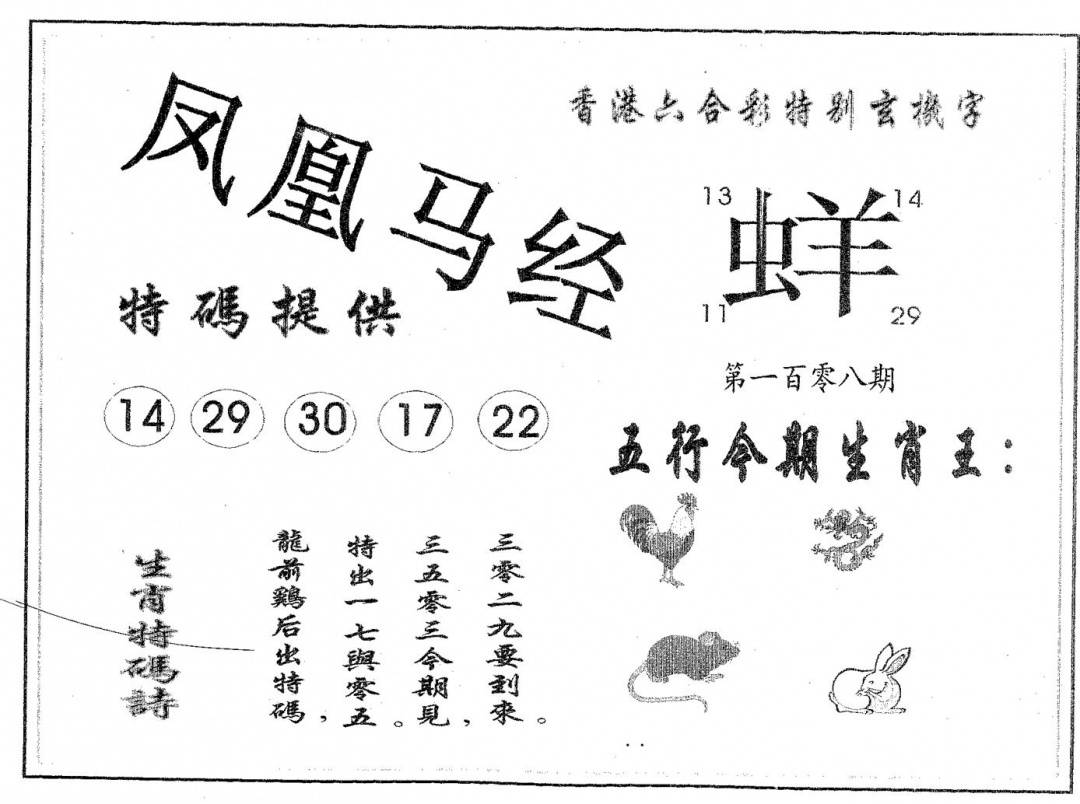 凤凰马经
香港六合彩特别玄機字
13 14
蛘
11 29
特碼提供
第一百零八期
14 29 30 17 22
五行今期生肖王：
生肖特碼詩
龍前鷄后出特碼，
特出一七與零五。
三五零三今期見，
三零二九要到來。